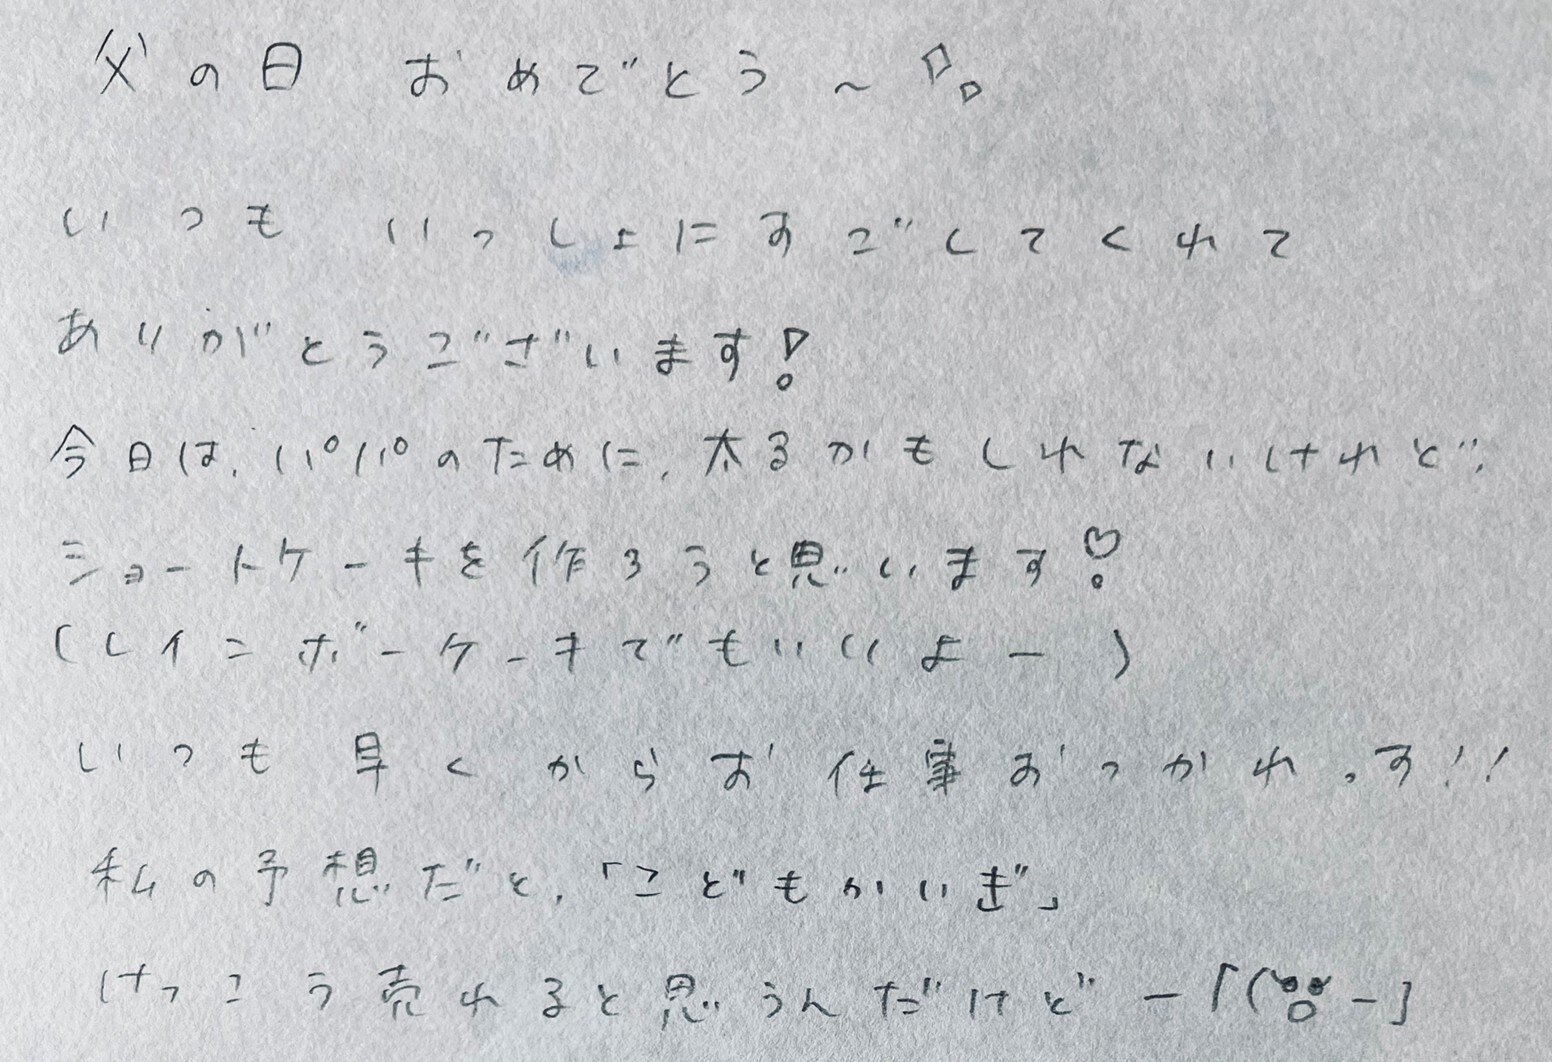 父の日 おめでとう～
いつも いっしょにすごしてくれて
ありがとうございます!
今日は、パパのために、太るかもしれないけれど、
ショートケーキを作ろうと思います♡
(レインボーケーキでもいいよー)
いつも 早くからお仕事おつかれっす!!
私の予想だと、「こどもかいぎ」
けっこう売れると思うんだけどー